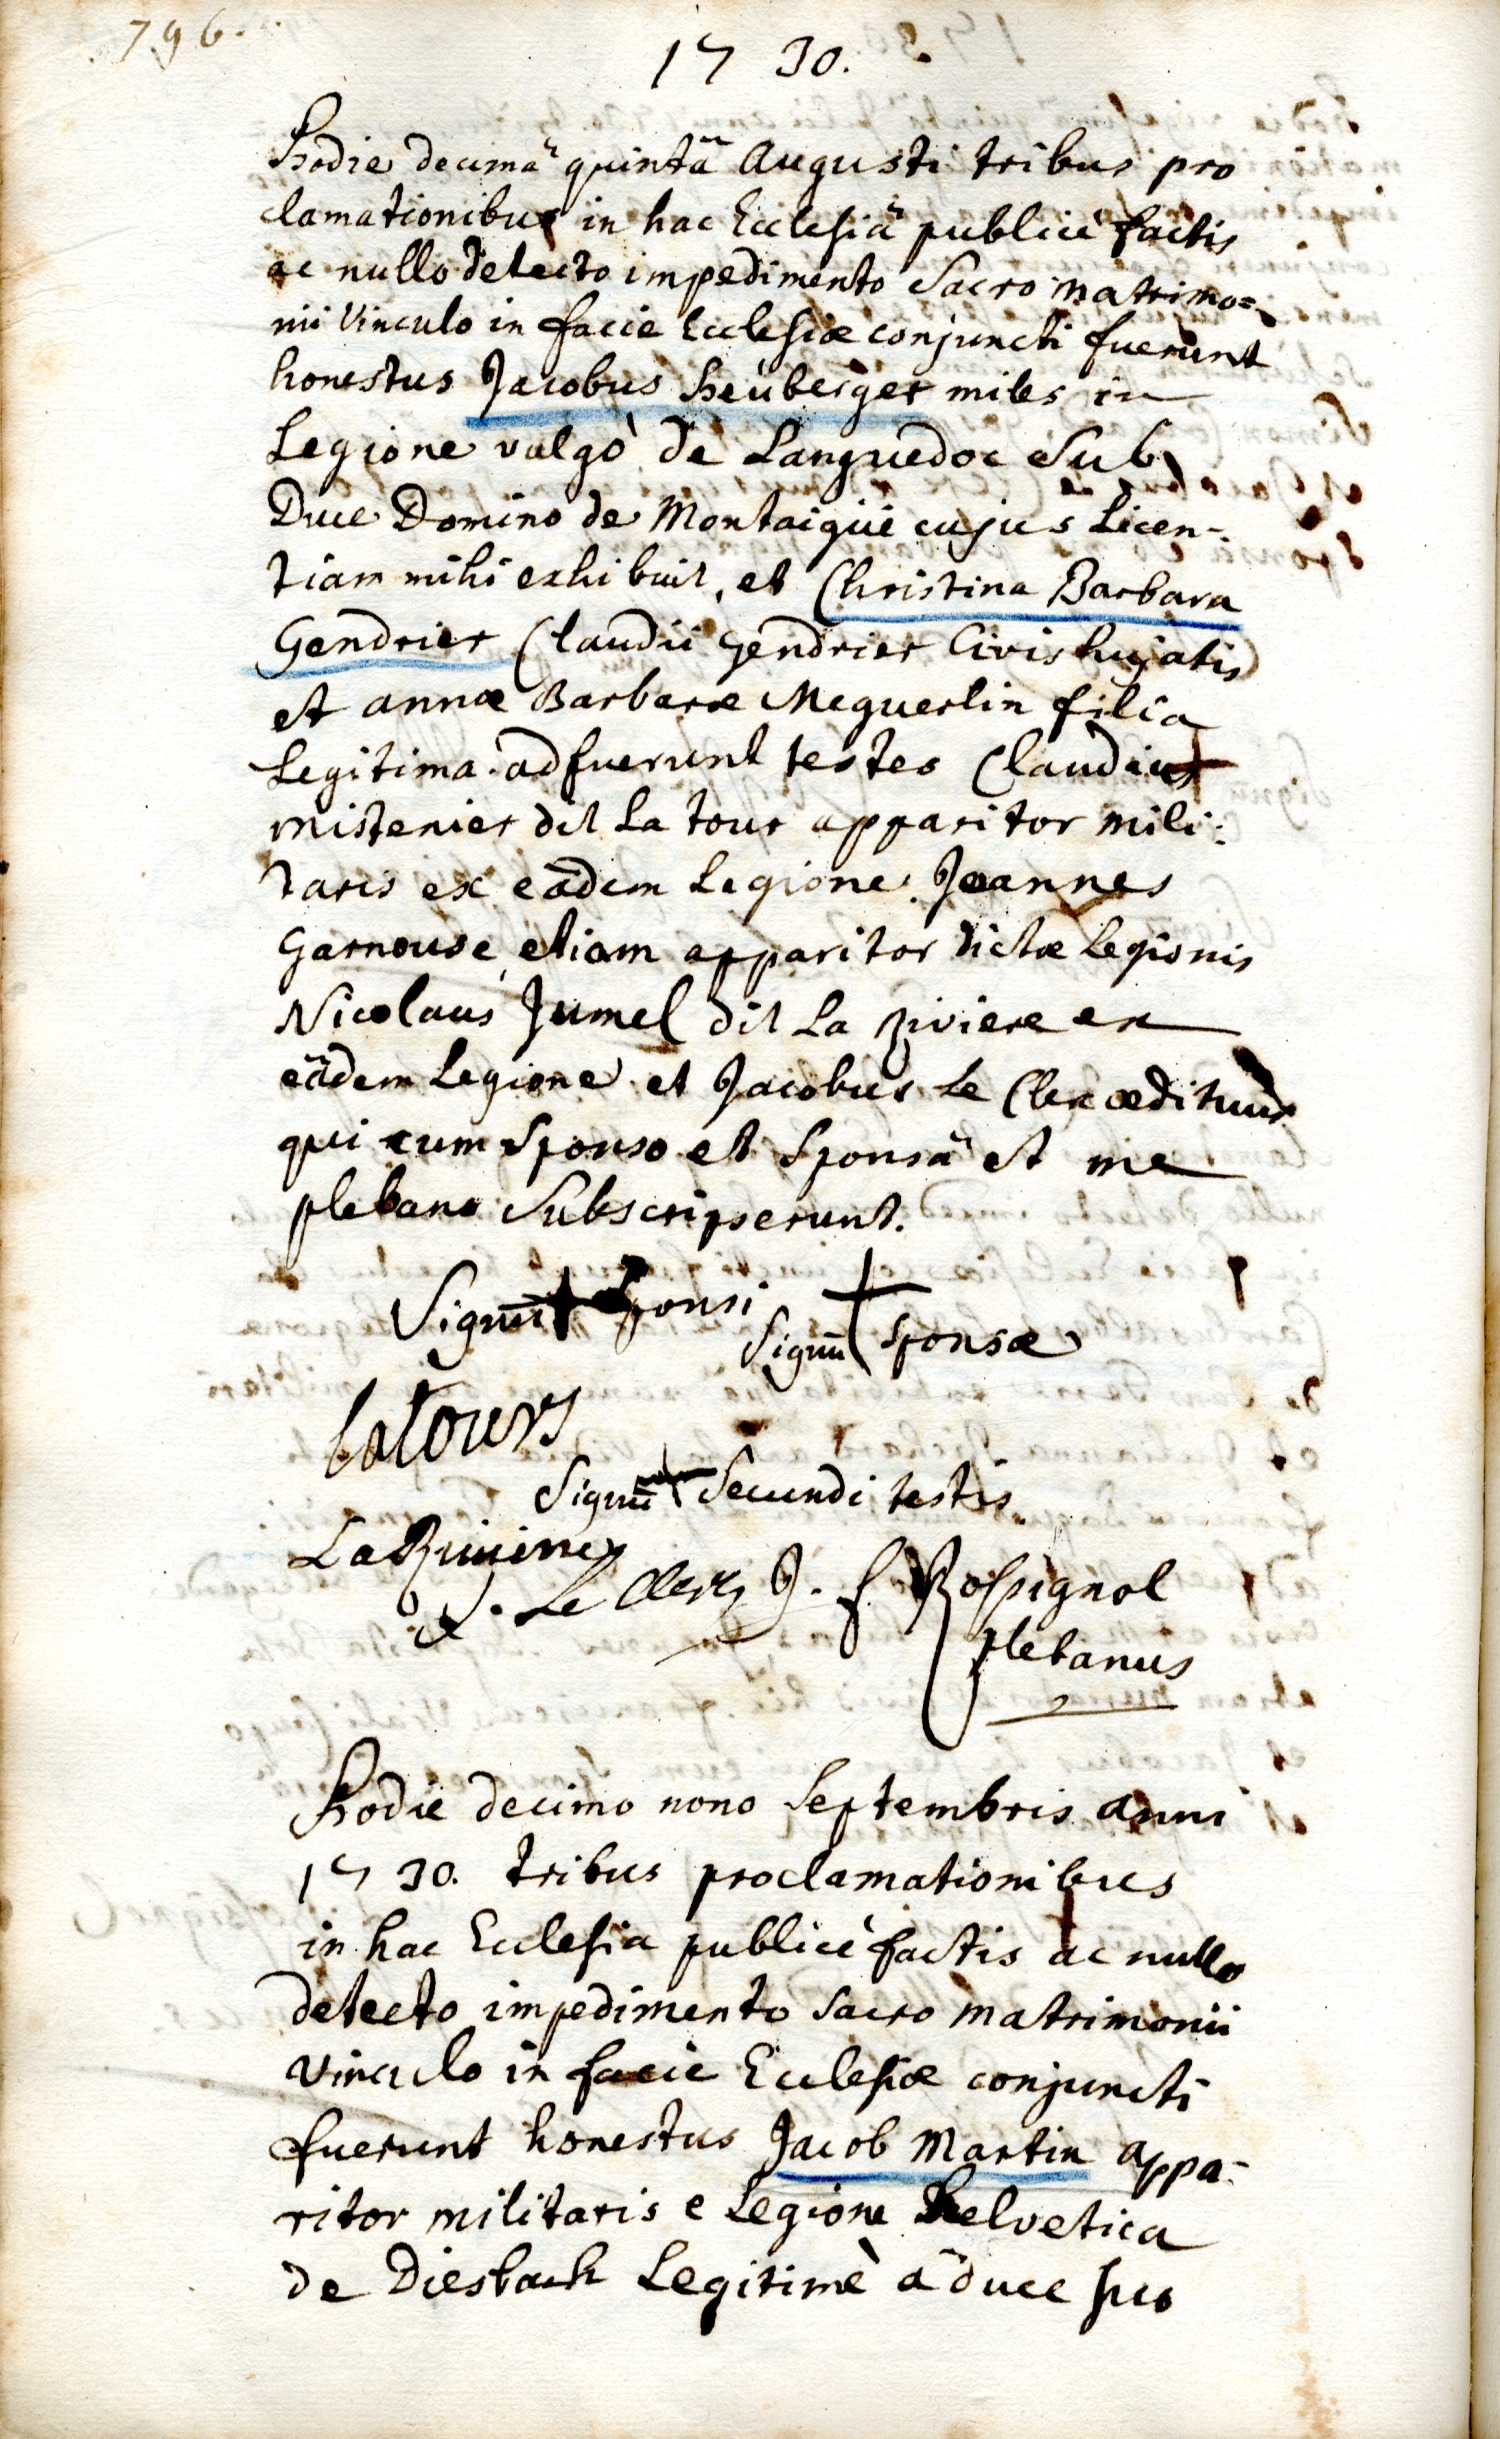 796.
1730.
Hodie decimâ quintâ Augusti tribus pro
clamationibus in hac Ecclesiâ publicè factis
ac nullo detecto impedimento Sacro matrimo=
nii Vinculo in facie Ecclesiæ conjuncti fuerunt
honestus Jacobus Heuberger miles in
Legione vulgò de Languedoc Sub
Duce Domino de Montaigüe cujus Licen-
tiam mihi exhibuit, et Christina Barbara
Gendrier Claudii Gendrier Civis hujatis
et annæ Barbaræ Meguerlin filia
Legitima. adfuerunt testes Claudius
mistenier dit La tour apparitor mili:
taris ex eâdem Legione, Joannes
Garnouse etiam apparitor dictæ Legionis
Nicolaus Jumel dit La Riviere ex
eâdem Legione et Jacobus Le Clerc ædituus
qui cum Sponso et Sponsâ et me
plebano Subscripserunt.
Signū + Sponsi
Signū + Sponsæ
latours
Signū + Secundi testis
LaRiviere
J. Le Clerc J. f. Rossignol
plebanus
Hodie decimo nono Septembris anni
1730. tribus proclamationibus
in hac Ecclesia publicè factis ac nullo
detecto impedimento Sacro matrimonii
vinculo in facie Ecclesiæ conjuncti
fuerunt honestus Jacob Martin appa-
ritor militaris e Legione Helvetica
de Diesbach Legitimè â duce suo